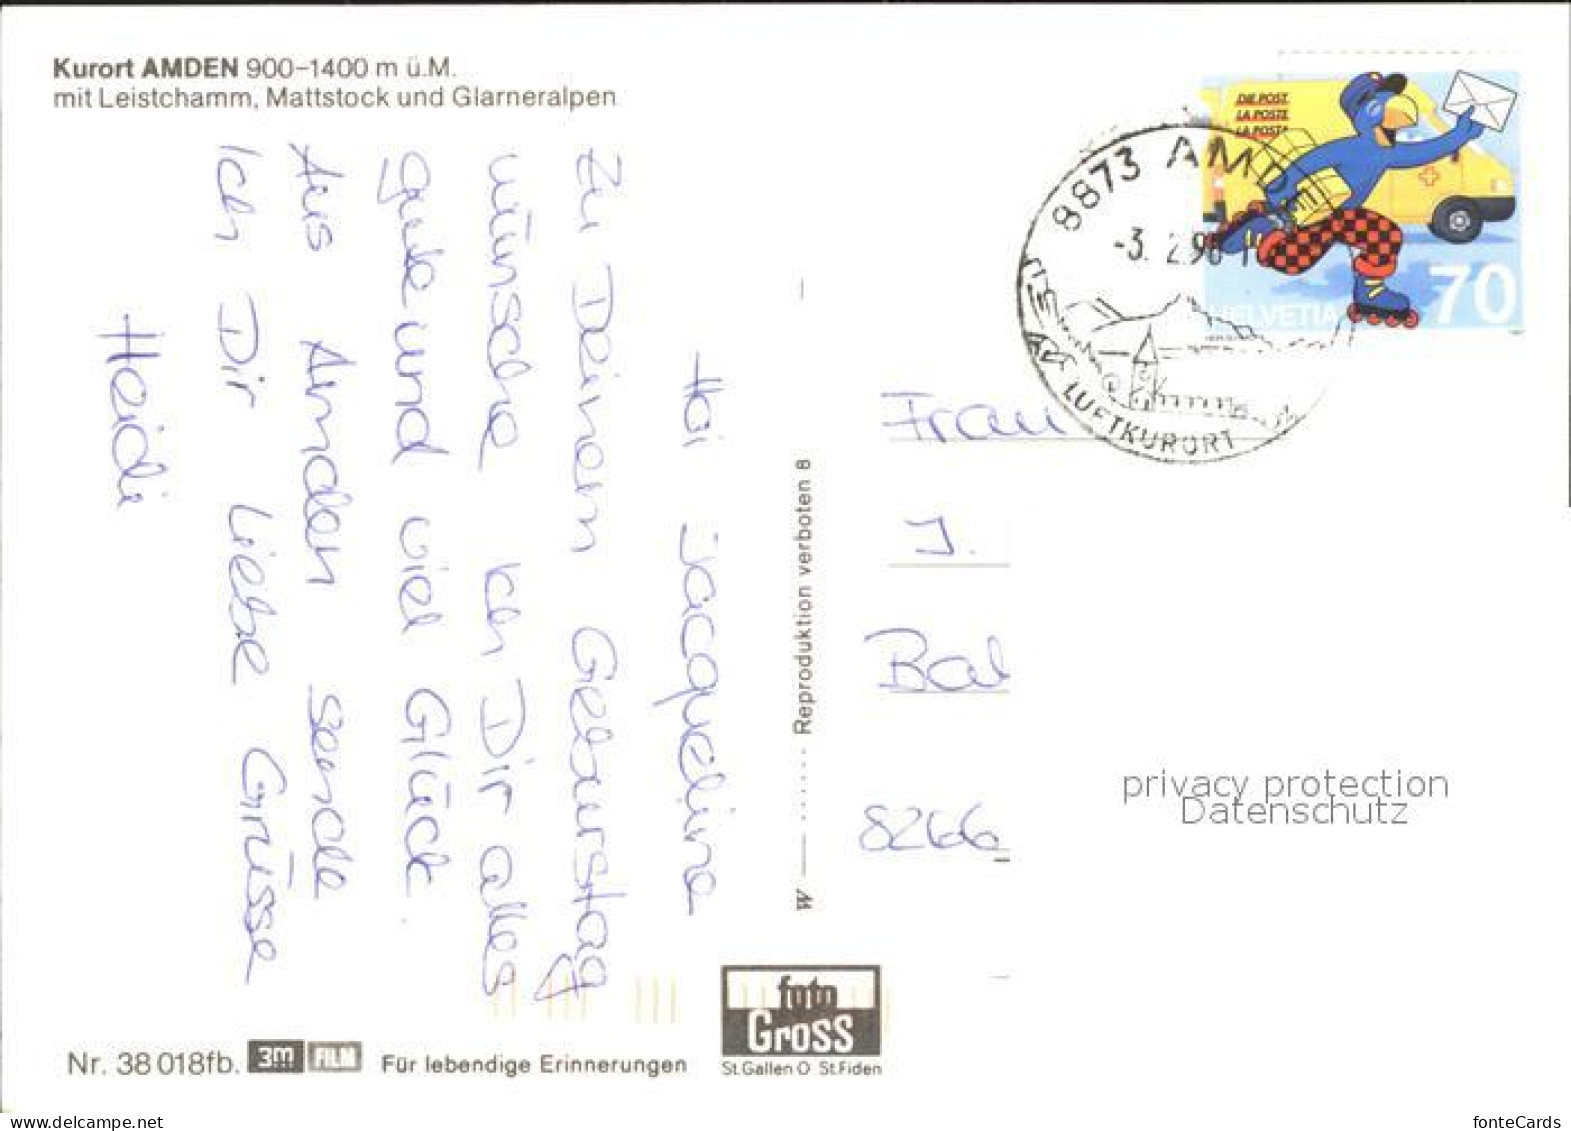 Kurort AMDEN 900–1400 m ü.M.
mit Leistchamm, Mattstock und Glarneralpen
Hoi Jacqueline
Zu Deinem Geburstag
wünsche ich Dir alles
gute und viel Glück.
Aus Amden sende
Ich Dir Liebe Grüsse
Heidi
W — ...... Reproduktion verboten 8
DIE POST
LA POSTE
LA POSTA
HELVETIA
70
8873 AMDEN
-3. 2.98
LUFTKURORT
Frau
J.
Bal
8266
privacy protection
Datenschutz
Nr. 38 018fb. 3M FILM Für lebendige Erinnerungen
foto
Gross
St.Gallen O St.Fiden
www.delcampe.net
fonteCards